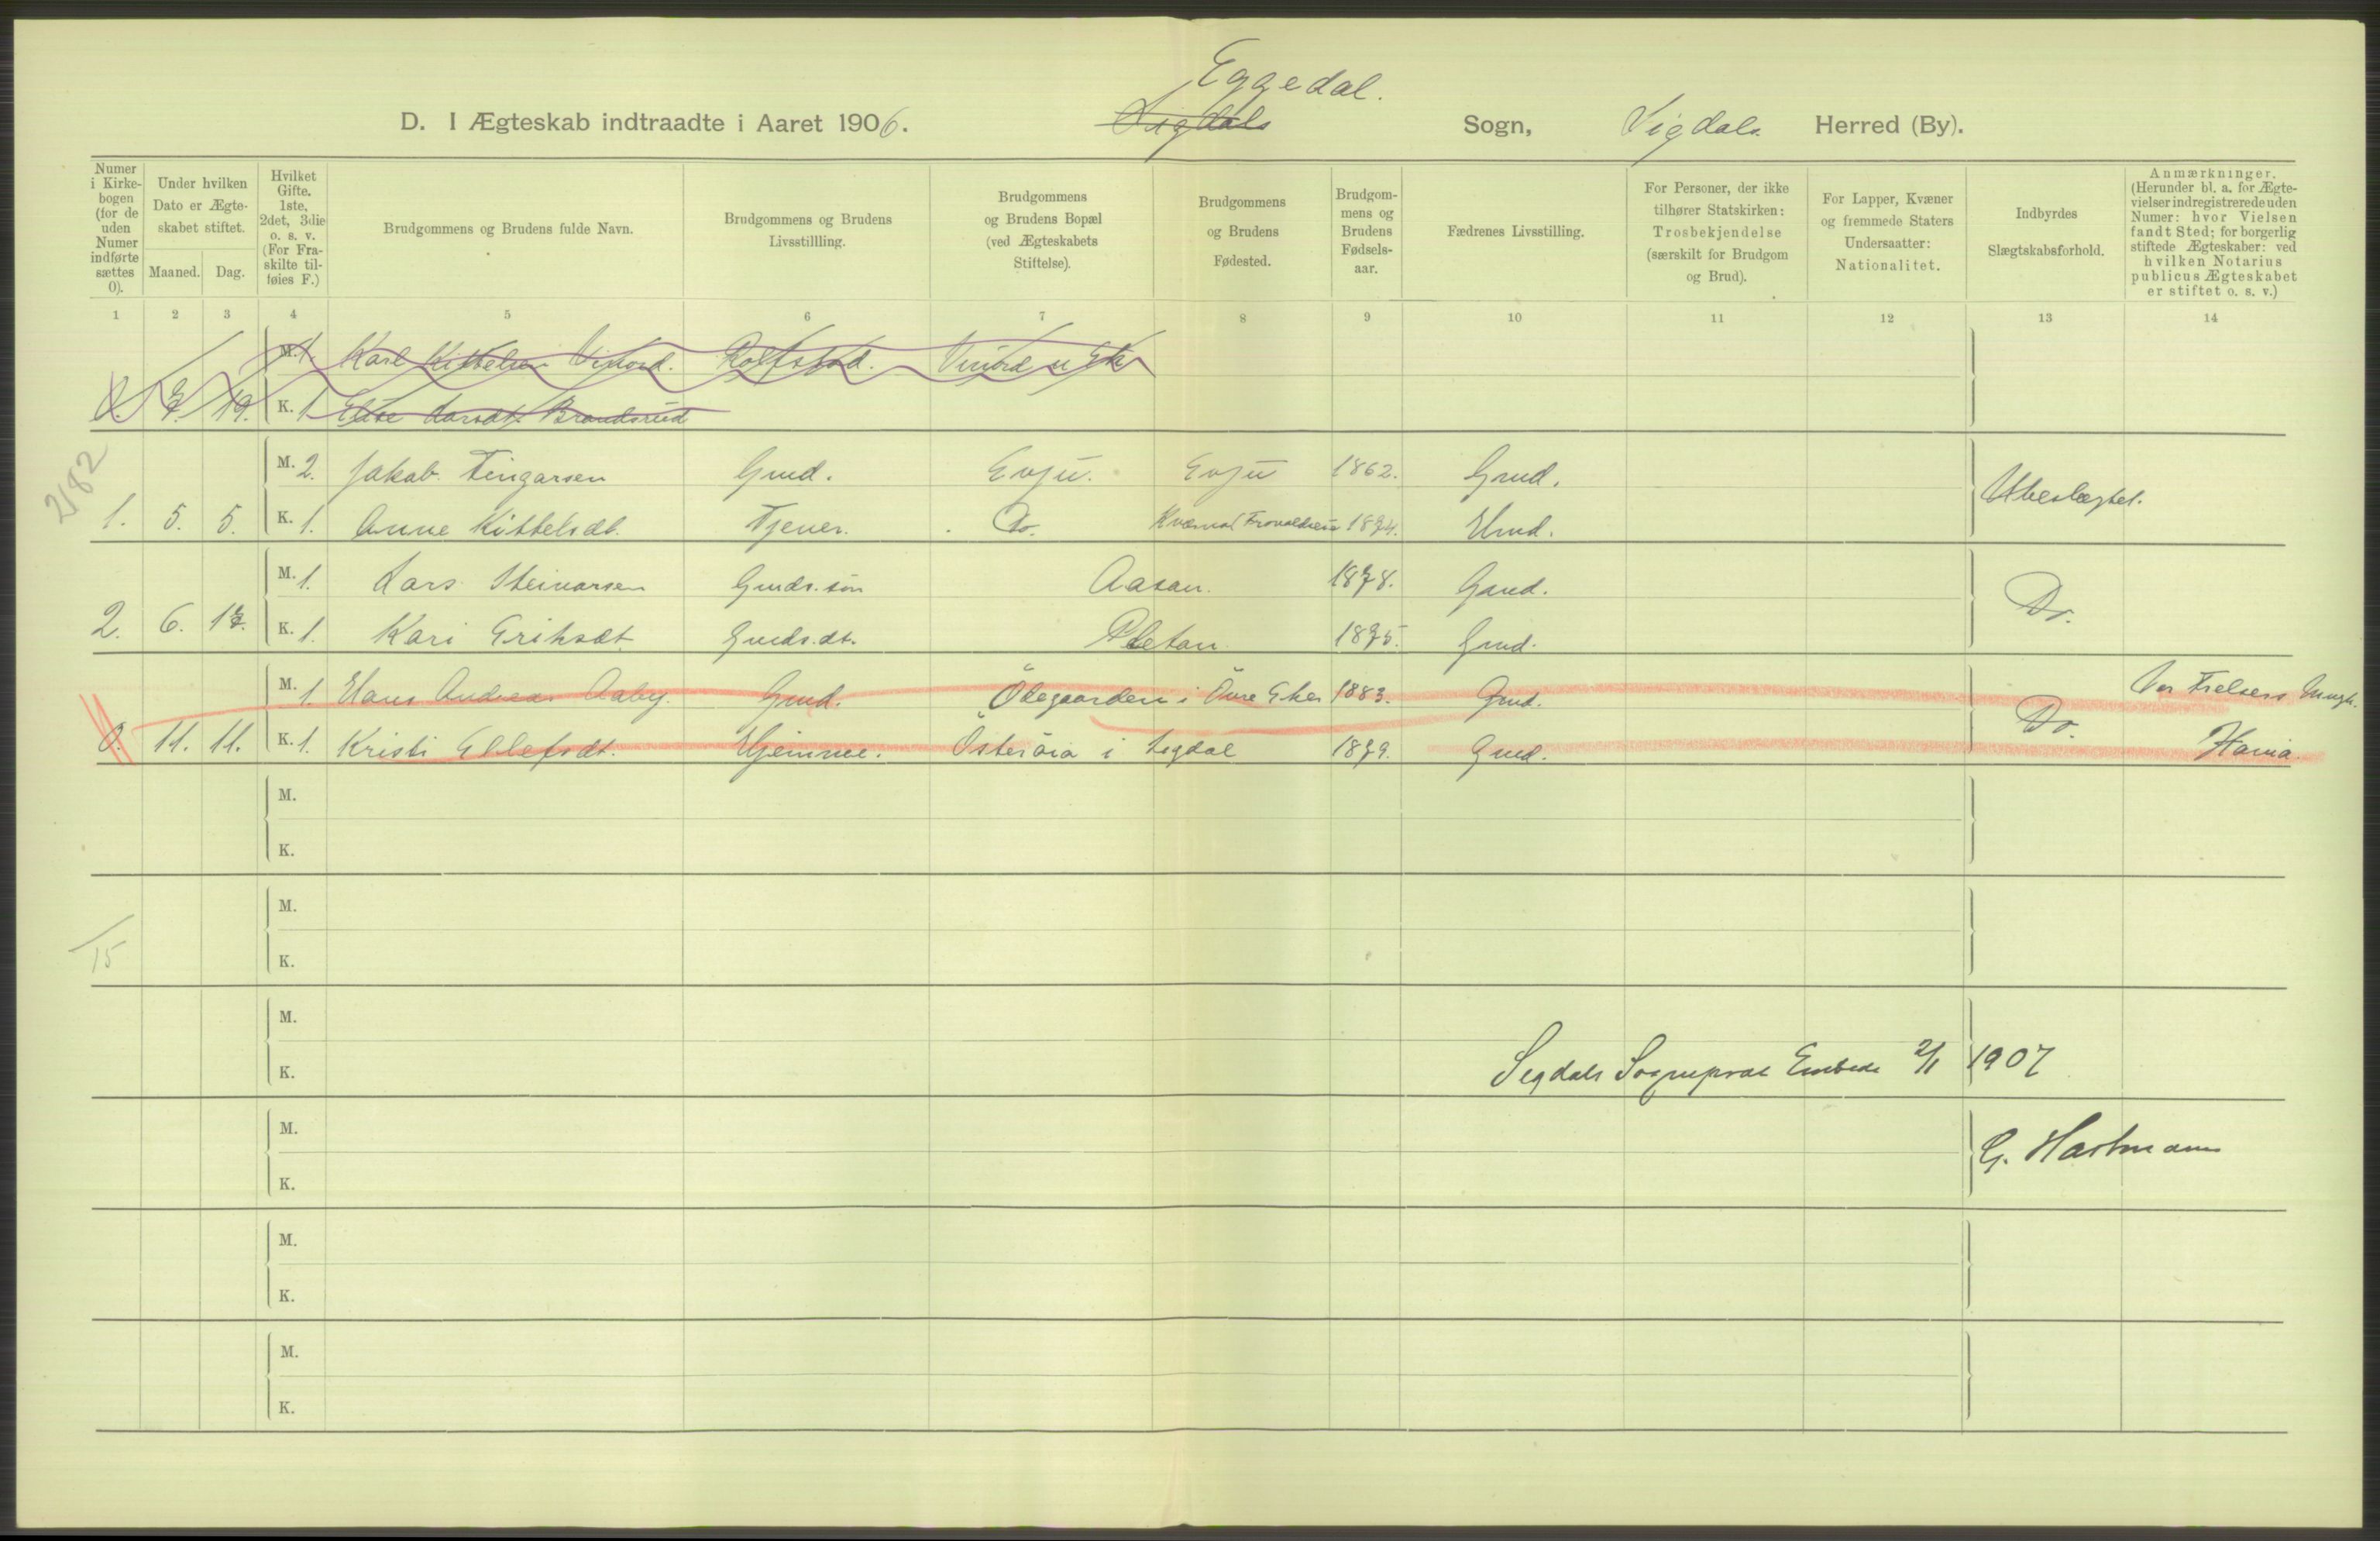 Eggedal.
D. I Ægteskab indtraadte i Aaret 1906. Sigdals Sogn, Sigdals Herred (By).
Numer i Kirke-bogen (for de uden Numer indførte sættes 0).
Under hvilken Dato er Ægte-skabet stiftet.
Maaned. Dag.
Hvilket Gifte. 1ste, 2det, 3die o. s. v. (For Fra-skilte til-føies F.)
Brudgommens og Brudens fulde Navn.
Brudgommens og Brudens Livsstillling.
Brudgommens og Brudens Bopæl (ved Ægteskabets Stiftelse).
Brudgommens og Brudens Fødested.
Brudgom-mens og Brudens Fødsels-aar.
Fædrenes Livsstilling.
For Personer, der ikke tilhører Statskirken: Trosbekjendelse (særskilt for Brudgom og Brud).
For Lapper, Kvæner og fremmede Staters Undersaatter: Nationalitet.
Indbyrdes Slægtskabsforhold.
Anmærkninger. (Herunder bl. a. for Ægte-vielser indregistrerede uden Numer: hvor Vielsen fandt Sted; for borgerlig stiftede Ægteskaber: ved hvilken Notarius publicus Ægteskabet er stiftet o. s. v.)
1 2 3 4 5 6 7 8 9 10 11 12 13 14
M. 1. Karl Kittelsen
19. K. 1 Larsdt. Brandsrud
2182
M. 2. Jakob Gmd. Evju. Evju 1862. Gmd.
1. 5. 5. K. 1. Anne Kittelsdt. Tjener. Do. 1874. Hmd. Ubeslægtet.
M. 1. Lars Steinarsen Gmds. søn Aasan. 1878. Gaard.
2. 6. 17. K. 1. Kari Eriksdt. Gmds. dt. Pletan 1875. Gmd. Do.
M. 1. Hans Andreas Aaby. Gmd. Ödegaarden i Övre Eker 1883. Gmd. Vor Frelsers
0. 11. 11. K. 1. Kristi Ellefsdt. Hjemme. i Sigdal 1879. Gmd. Do. Hama
M.
K.
M.
15
K.
M.
K. Sigdals Sognepræt Embede 2/1 1907
M.
G. Hartmann
K.
M.
K.
M.
K.